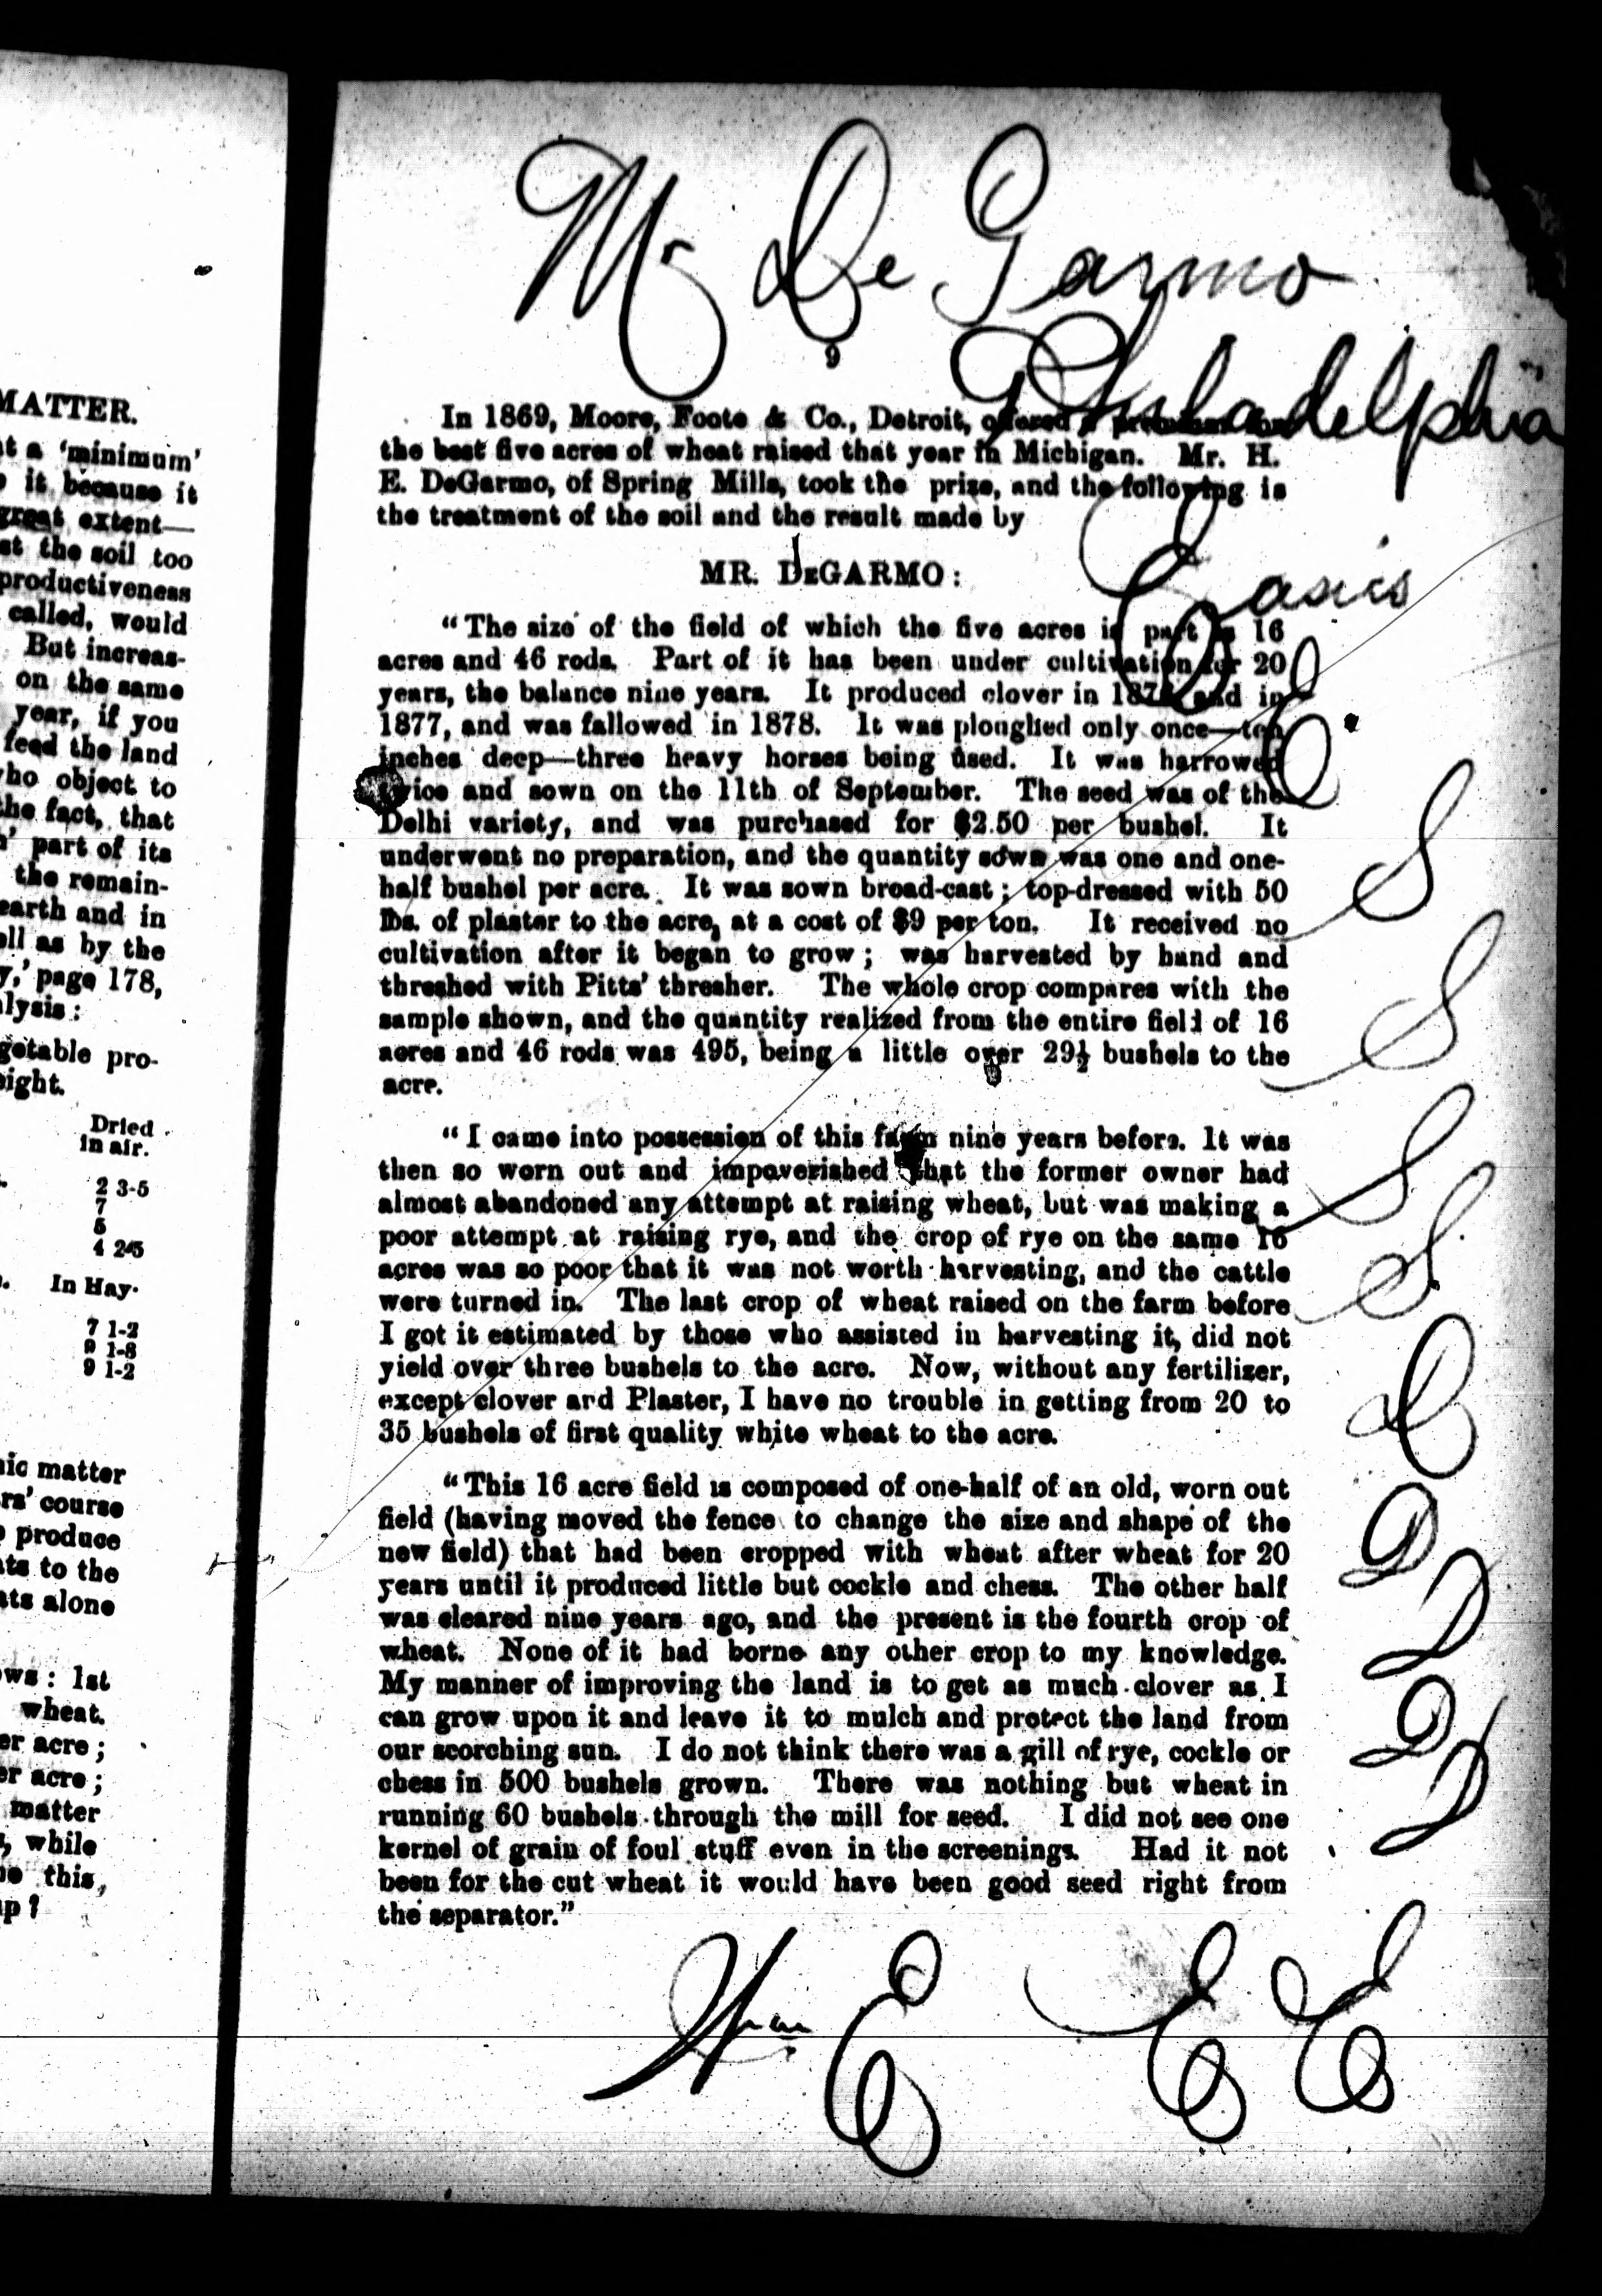 MATTER.
t a 'minimum'
it because it
great extent—
at the soil too
productiveness
called, would
But increas-
on the same
year, if you
feed the land
who object to
the fact, that
part of its
the remain-
earth and in
ell as by the
y,' page 178,
alysis:
getable pro-
eight.
Dried
in air.
2 3-5
7
5
4 2-5
In Hay.
7 1-2
9 1-2
nic matter
rs' course
produce
ts to the
ats alone
ows: 1st
wheat.
er acre;
er acre;
matter
, while
this,
up?
Mr De Garmo
Philadelphia
9
In 1869, Moore, Foote & Co., Detroit, offered a premium for
the best five acres of wheat raised that year in Michigan. Mr. H.
E. DeGarmo, of Spring Mills, took the prize, and the following is
the treatment of the soil and the result made by
MR. DEGARMO:
"The size of the field of which the five acres is part is 16
acres and 46 rods. Part of it has been under cultivation for 20
years, the balance nine years. It produced clover in and in
1877, and was fallowed in 1878. It was ploughed only once—ten
inches deep—three heavy horses being used. It was harrowed
twice and sown on the 11th of September. The seed was of the
Delhi variety, and was purchased for $2.50 per bushel. It
underwent no preparation, and the quantity sown was one and one-
half bushel per acre. It was sown broad-cast; top-dressed with 50
lbs. of plaster to the acre, at a cost of $9 per ton. It received no
cultivation after it began to grow; was harvested by hand and
threshed with Pitts' thresher. The whole crop compares with the
sample shown, and the quantity realized from the entire field of 16
acres and 46 rods was 495, being a little over 29½ bushels to the
acre.
"I came into possession of this farm nine years before. It was
then so worn out and impoverished that the former owner had
almost abandoned any attempt at raising wheat, but was making a
poor attempt at raising rye, and the crop of rye on the same 16
acres was so poor that it was not worth harvesting, and the cattle
were turned in. The last crop of wheat raised on the farm before
I got it estimated by those who assisted in harvesting it, did not
yield over three bushels to the acre. Now, without any fertilizer,
except clover ard Plaster, I have no trouble in getting from 20 to
35 bushels of first quality white wheat to the acre.
"This 16 acre field is composed of one-half of an old, worn out
field (having moved the fence to change the size and shape of the
new field) that had been cropped with wheat after wheat for 20
years until it produced little but cockle and chess. The other half
was cleared nine years ago, and the present is the fourth crop of
wheat. None of it had borne any other crop to my knowledge.
My manner of improving the land is to get as much clover as I
can grow upon it and leave it to mulch and protect the land from
our scorching sun. I do not think there was a gill of rye, cockle or
chess in 500 bushels grown. There was nothing but wheat in
running 60 bushels through the mill for seed. I did not see one
kernel of grain of foul stuff even in the screenings. Had it not
been for the cut wheat it would have been good seed right from
the separator."
S
S
S
S
D
D
D
D
Wm E E E